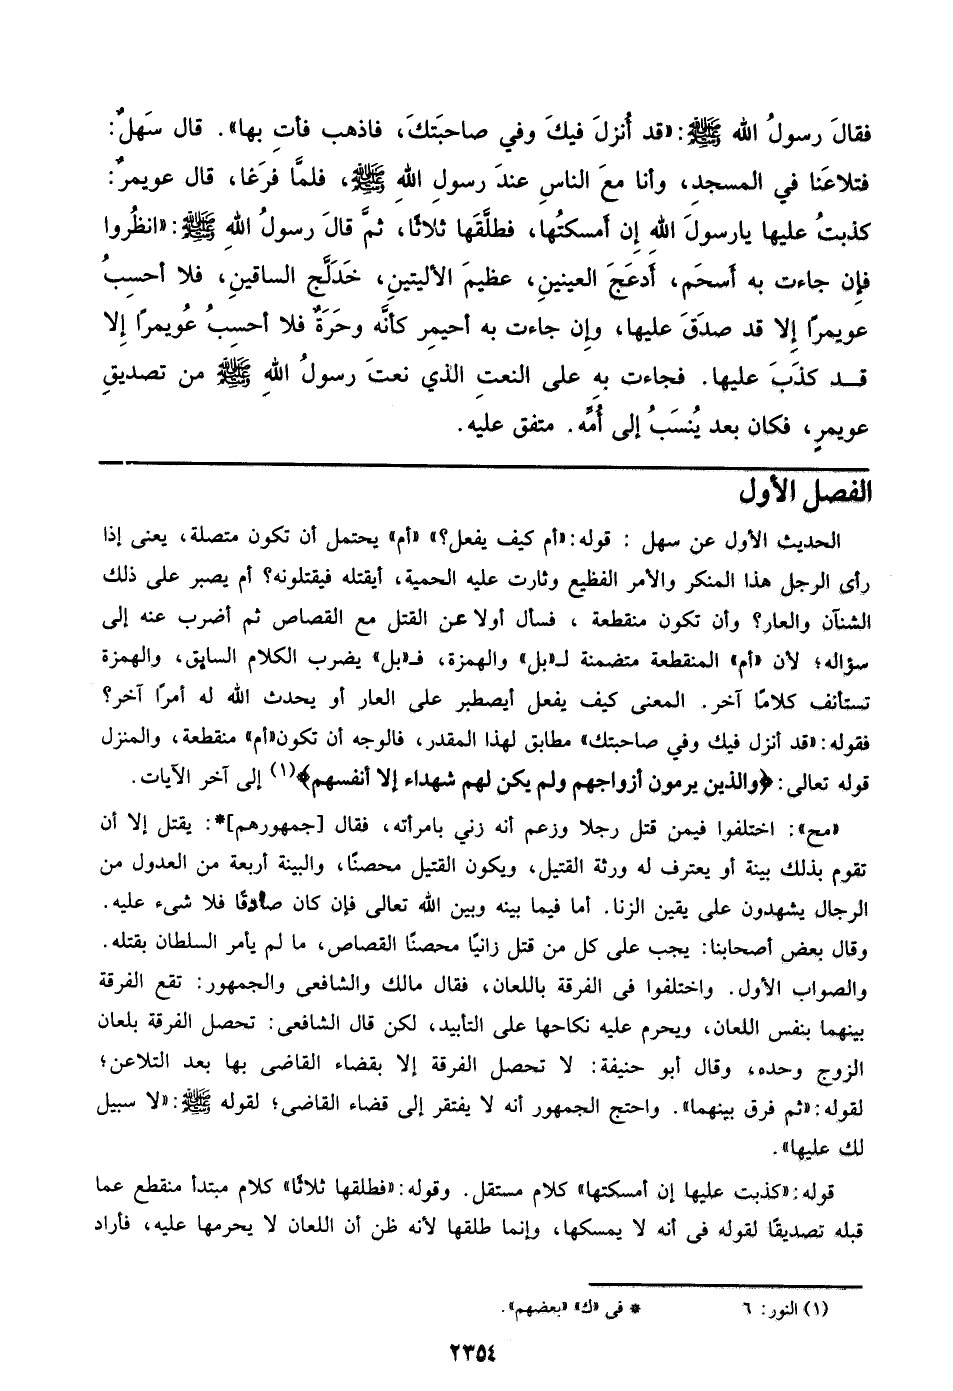 فقالَ رسولُ الله ﷺ: «قد أُنزلَ فيكَ وفي صاحبَتكَ، فاذهب فأتِ بها». قال سَهلٌ:
فتلاعَنا في المسجدِ، وأنا معَ الناسِ عندَ رسولِ اللهِ ﷺ، فلمَّا فرَغا، قال عويمرٌ:
كذبتُ عليها يارسولَ اللهِ إن أمسكتُها، فطلَّقَها ثلاثًا، ثمَّ قالَ رسولُ اللهِ ﷺ: «انظُروا
فإن جاءت به أَسحَم، أَدعَجَ العينينِ، عظيمَ الأليتينِ، خَدَلَّج الساقينِ، فلا أحسِبُ
عويمرًا إلا قد صدَقَ عليها، وإن جاءت به أحيمر كأنَّه وحَرَةٌ فلا أحسِبُ عُويمرًا إلا
قـد كذَبَ عليها. فجاءت بِه على النعتِ الذي نعتَ رسولُ اللهِ ﷺ من تصديقِ
عويمرٍ، فكان بعد يُنسَبُ إلى أُمِّه. متفق عليه.
الفصل الأول
الحديث الأول عن سهل : قوله: «أم كيف يفعل؟» «أم» يحتمل أن تكون متصلة، يعنى إذا
رأى الرجل هذا المنكر والأمر الفظيع وثارت عليه الحمية، أيقتله فيقتلونه؟ أم يصبر على ذلك
الشنآن والعار؟ وأن تكون منقطعة ، فسأل أولا عن القتل مع القصاص ثم أضرب عنه إلى
سؤاله؛ لأن «أم» المنقطعة متضمنة لـ«بل» والهمزة، فـ«بل» يضرب الكلام السابق، والهمزة
تستأنف كلامًا آخر. المعنى كيف يفعل أيصطبر على العار أو يحدث الله له أمرًا آخر؟
فقوله: «قد أنزل فيك وفي صاحبتك» مطابق لهذا المقدر، فالوجه أن تكون«أم» منقطعة، والمنزل
قوله تعالى: ﴿والذين يرمون أزواجهم ولم يكن لهم شهداء إلا أنفسهم﴾(١) إلى آخر الآيات.
«مح»: اختلفوا فيمن قتل رجلا وزعم أنه زني بامرأته، فقال [جمهورهم]*: يقتل إلا أن
تقوم بذلك بينة أو يعترف له ورثة القتيل، ويكون القتيل محصنًا، والبينة أربعة من العدول من
الرجال يشهدون على يقين الزنا. أما فيما بينه وبين الله تعالى فإن كان صادقًا فلا شىء عليه.
وقال بعض أصحابنا: يجب على كل من قتل زانيًا محصنًا القصاص، ما لم يأمر السلطان بقتله.
والصواب الأول. واختلفوا فى الفرقة باللعان، فقال مالك والشافعى والجمهور: تقع الفرقة
بينهما بنفس اللعان، ويحرم عليه نكاحها على التأبيد، لكن قال الشافعى: تحصل الفرقة بلعان
الزوج وحده، وقال أبو حنيفة: لا تحصل الفرقة إلا بقضاء القاضى بها بعد التلاعن؛
لقوله: «ثم فرق بينهما». واحتج الجمهور أنه لا يفتقر إلى قضاء القاضى؛ لقوله ﷺ: «لا سبيل
لك عليها».
قوله: «كذبت عليها إن أمسكتها» كلام مستقل. وقوله: «فطلقها ثلاثًا» كلام مبتدأ منقطع عما
قبله تصديقًا لقوله فى أنه لا يمسكها، وإنما طلقها لأنه ظن أن اللعان لا يحرمها عليه، فأراد
(١) النور: ٦ * فى «ك» «بعضهم».
٢٣٥٤